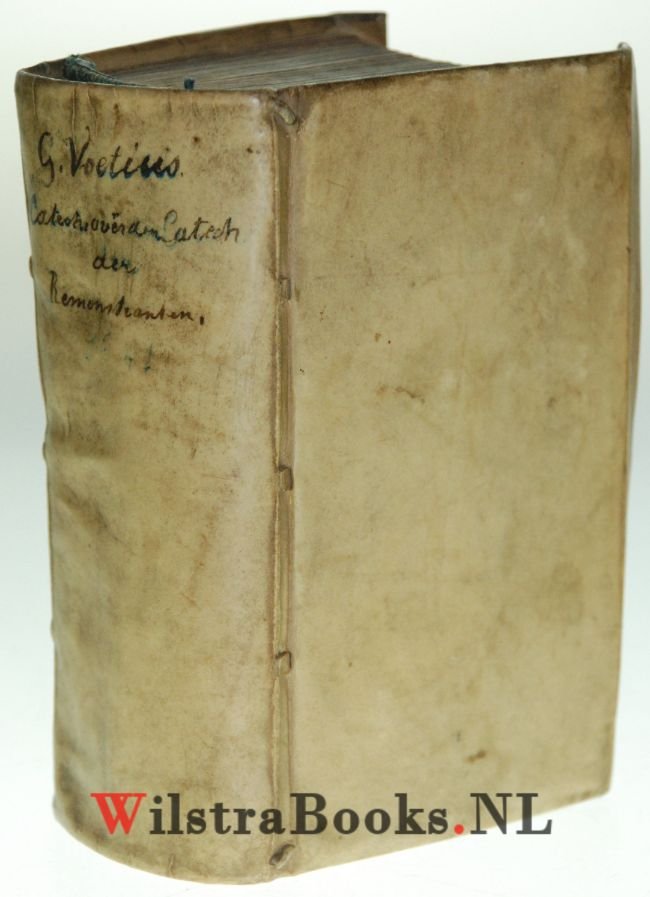 G. Voetius.
Catech. over den Catech
der
Remonstranten.
WilstraBooks.NL